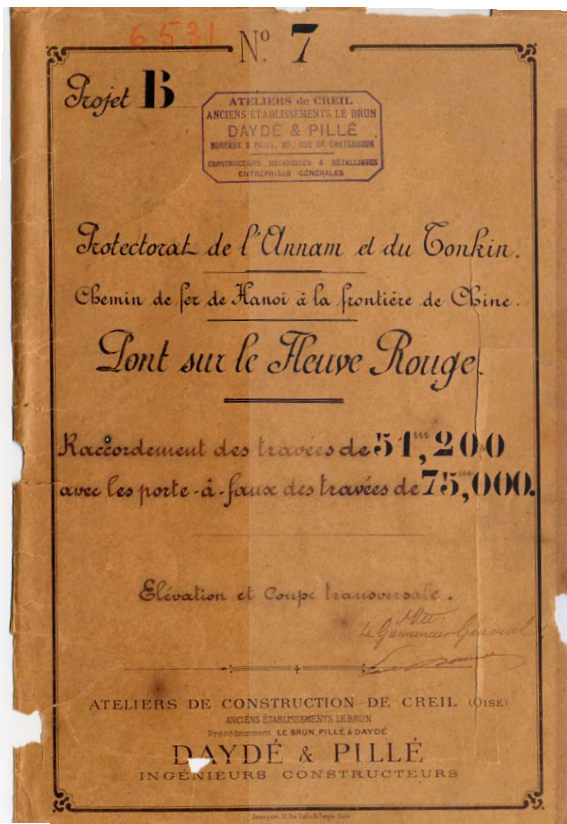 6531
Nº 7
Projet B
ATELIERS de CREIL
ANCIENS ÉTABLISSEMENTS LE BRUN
DAYDÉ & PILLÉ
BUREAUX à PARIS, 29, RUE DE CHATEAUDUN
CONSTRUCTIONS MÉCANIQUES & MÉTALLIQUES
ENTREPRISES GÉNÉRALES
Protectorat de l'Annam et du Tonkin.
Chemin de fer de Hanoï à la frontière de Chine.
Pont sur le Fleuve Rouge.
Raccordement des travées de 51,m200
avec les porte-à-faux des travées de 75,m000.
Elévation et Coupe transversale.
Vu:
Le Gouverneur Général
ATELIERS DE CONSTRUCTION DE CREIL (OISE)
ANCIENS ÉTABLISSEMENTS LE BRUN
Précédemment LE BRUN, PILLÉ & DAYDÉ
DAYDÉ & PILLÉ
INGÉNIEURS CONSTRUCTEURS